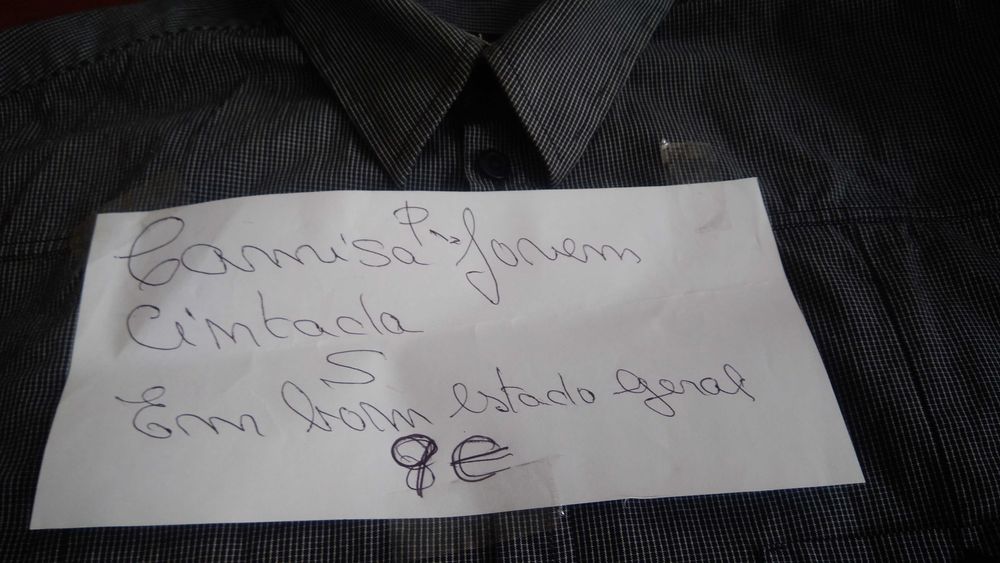 Camisa P. Jovem
Cintada
S
Em bom estado geral
€